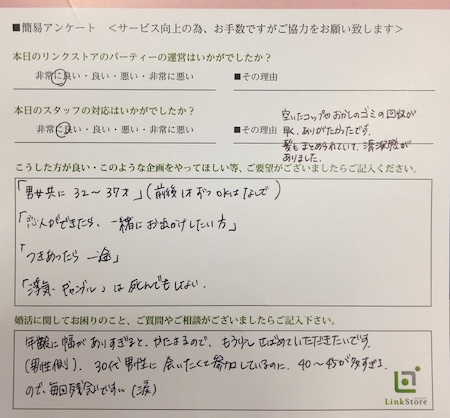 ■簡易アンケート ＜サービス向上の為、お手数ですがご協力をお願い致します＞
本日のリンクストアのパーティーの運営はいかがでしたか？
非常に良い・良い・悪い・非常に悪い ■その理由
本日のスタッフの対応はいかがでしたか？
非常に良い・良い・悪い・非常に悪い ■その理由
空いたコップやおかしのゴミの回収が
早く、ありがたかったです。
髪もまとめられていて、清潔感が
ありました。
こうした方が良い・このような企画をやってほしい等、ご要望がございましたらご記入ください。
「男女共に 32〜37才」(前後1才ずつOKはなしで)
「恋人ができたら、一緒にお出かけしたい方」
「つきあったら一途」
「浮気・ギャンブル」は死んでもしない。
婚活に関してお困りのこと、ご質問やご相談がございましたらご記入下さい。
年齢に幅がありすぎると、やたよるので、もう少しせばめていただきたいです。
(男性側)。30代男性に会いたくて参加しているのに、40〜45が多すぎる
ので、毎回残念です。(涙)
LinkStore